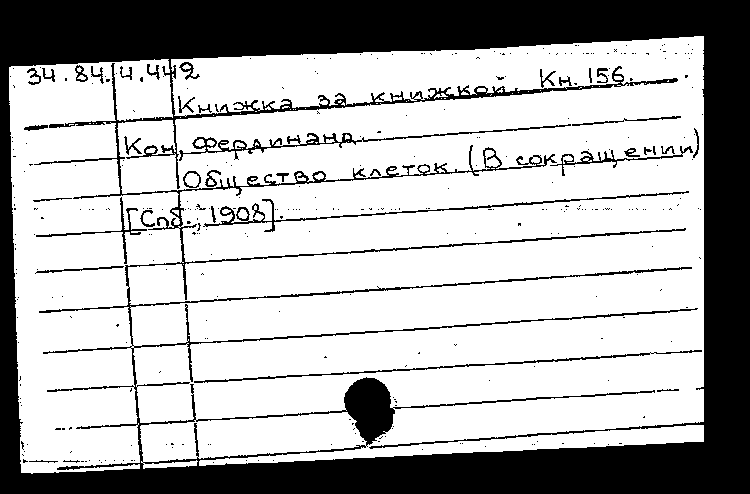 34.84.4.442
Книжка за книжкой. Кн. 156.
Кон, Фердинанд.
Общество клеток. (В сокращении)
[Спб., 1908].